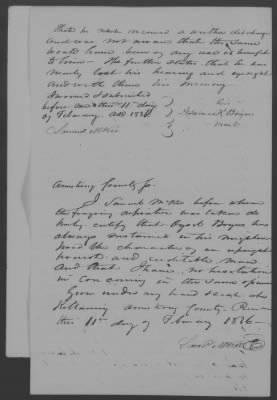 that he never received a written discharge
and was not aware that the same
would have been of any use or benefit
to him - He further states that he has
nearly lost his hearing and eyesight
and with them his memory
Sworn & subscribed
before me this 11th day
of February AD 1836
Samuel McKee
his
mark
Armstrong County Ss.
I Samuel McKee before whom
the foregoing was taken do
hereby certify that Boyer has
always sustained in his neighbor
hood the character of an upright
honest and creditable man
And that I have no hesitation
in concurring in the same opinion
Given under my hand & seal at
Kittanning Armstrong County Penn
this 11th day of February 1836 -
Saml McKee